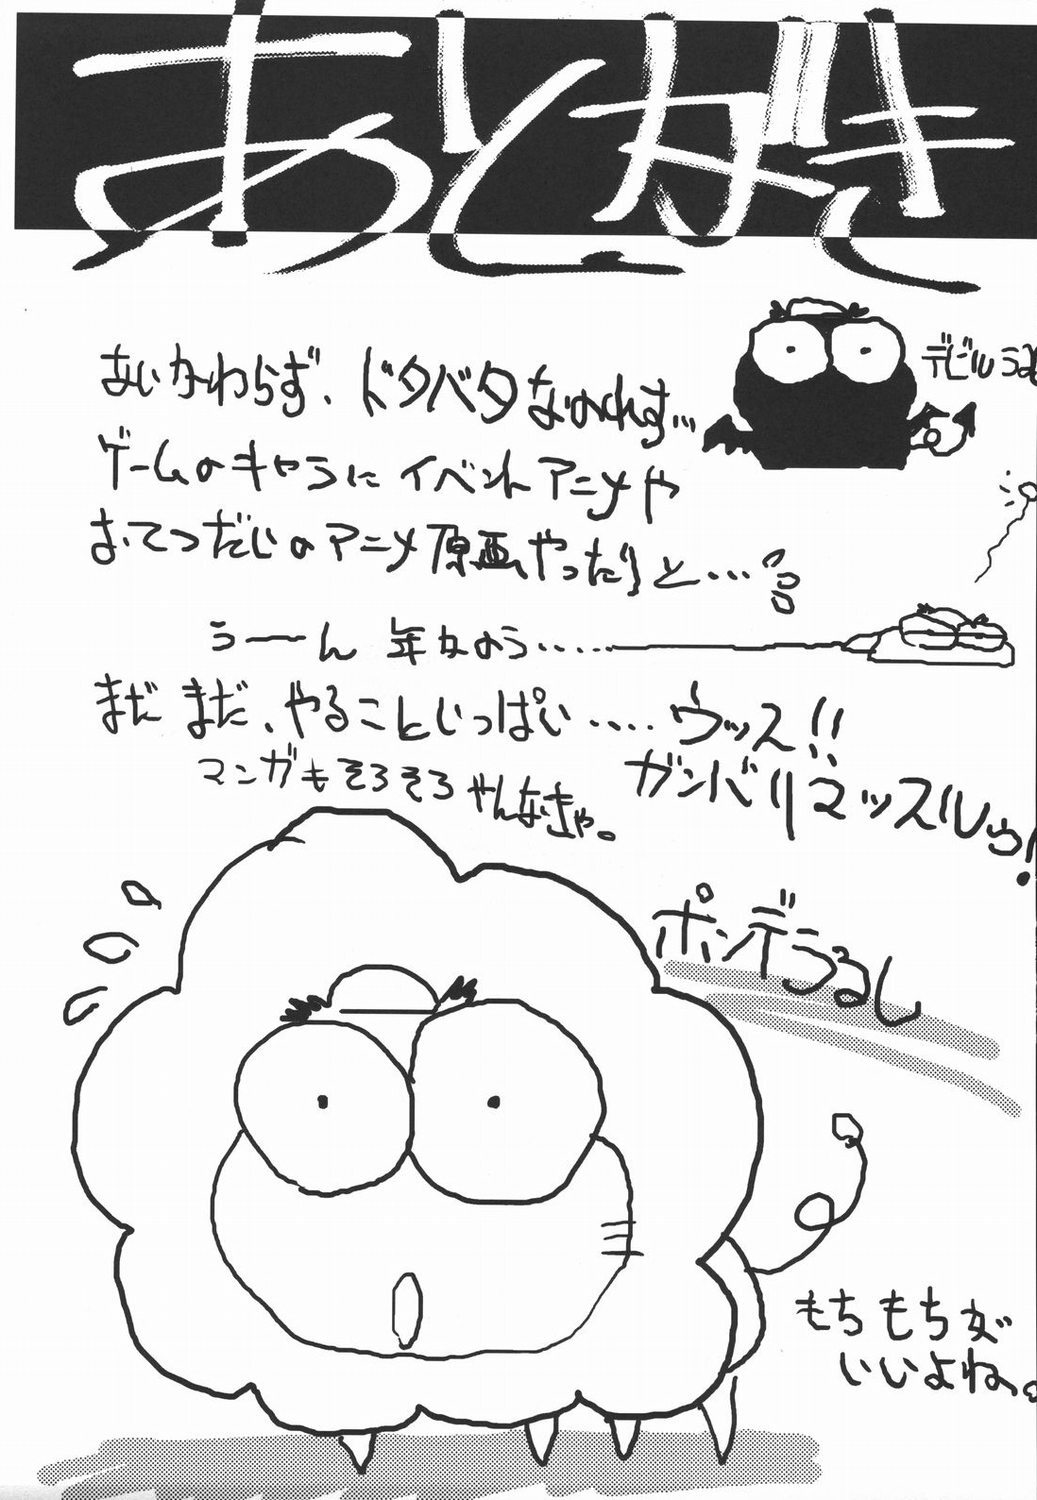 あとがき
あいかわらず、ドタバタなのれす…
デビルうる
ゲームのキャラに イベントアニメや
おてつだいのアニメ原画やったりと…
うーーん 年かのう……
まだまだ、やることいっぱい…… ウッス!!
マンガもそろそろ やんなきゃ。
ガンバリマッスルゥ!
ポンデうるし
もちもちが
いいよね。